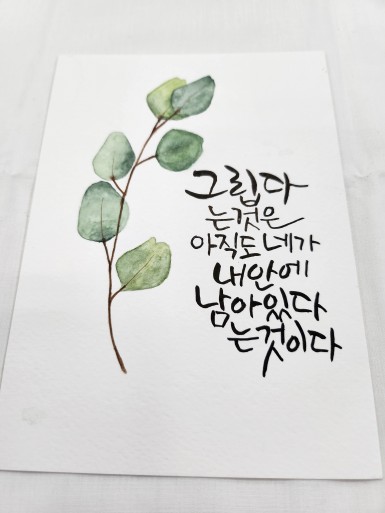 그립다
는것은
아직도 네가
내안에
남아있다
는것이다